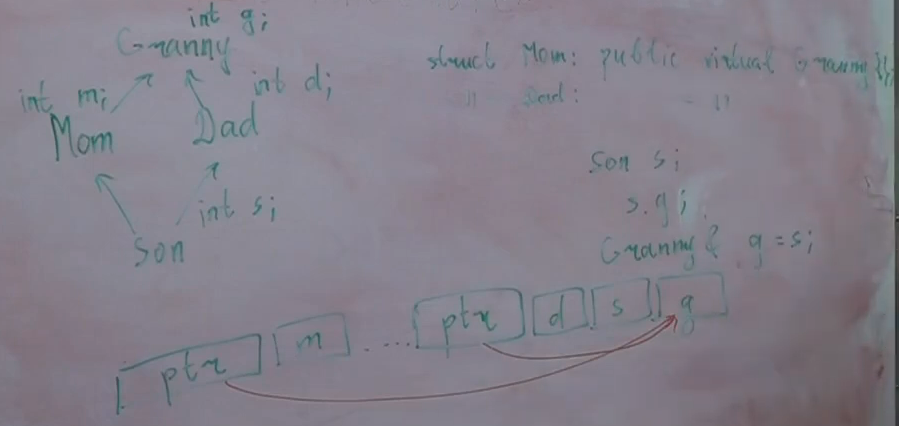 int g;
Granny
int m; int d;
Mom Dad
int s;
Son
struct Mom: public virtual Granny {};
" Dad: - "
Son s;
s.g;
Granny& g = s;
ptr m .... ptr d s g